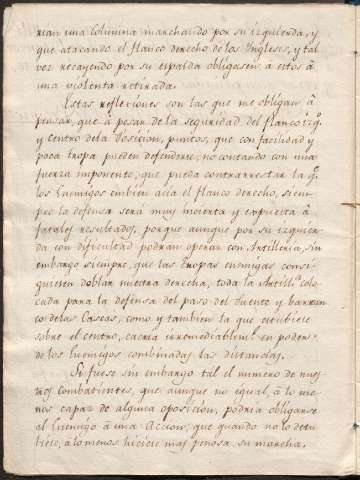 rean una Columna marchando por su izquierda, y
que atacando el flanco derecho de los Ingleses, y tal
vez recayendo por su espalda obligasen â estos â
una violenta retirada.
Estas reflexiones son las que me obligan â
pensar, que â pesar de la seguridad del flanco izq.º
y Centro dela Posicion, puntos, que con facilidad y
poca tropa pueden defenderse; no contando con una
fuerza imponente, que pueda contrarrestar la q.º
los Enemigos embien acia el flanco derecho, siem-
pre la defensa sera muy incierta y expuesta â
fatales resultados, porque aunque por su izquier-
da con dificultad podran operar con Artilleria, sin
embargo siempre, que las tropas enemigas consi-
guiesen doblar nuestra derecha, toda la Artill.ª colo-
cada para la defensa del paso del Puente y barran
co delas Cascas, como y tambien la que estubiese
sobre el centro, caeria irremediablem.te en poder
de los Enemigos combinadas las distancias.
Si fuese sin embargo tal el numero de nues-
tros combatientes, que aunque no igual, â lo me-
nos capaz de alguna oposicion, podria obligarse
al Enemigo â una Accion, que quando no lo detu-
biese, â lo menos hiciese mas penosa su marcha.